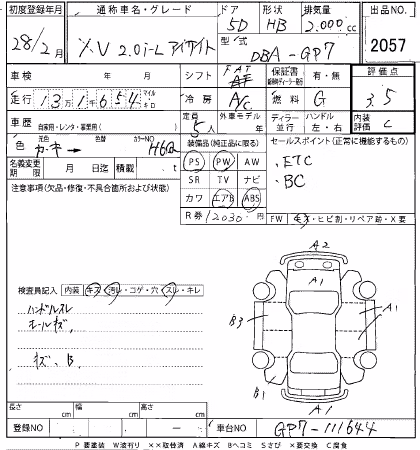 初度登録年月 通称車名・グレード ドア 形状 排気量 出品NO.
28/2月 XV 2.0i-L アイサイト 5D HB 2.000cc 2057
型式 DBA-GP7
車検 年 月 シフト FAT AT 保証書 有・無 評価点
走行 131654 マイル キロ 冷房 A/C 燃料 G 3.5
車歴 自家用・レンタ・事業用( ) 定員 5人 外車モデル ディーラー 並行 ハンドル 左・右 内装評価 C
色 元色 ガーキ→ 色替 カラーNO H6Q 装備品(純正品に限る) セールスポイント(正常に機能するもの)
名義変更期限 月 日迄 積載 t PS PW AW ・ETC
SR TV ナビ ・BC
注意事項(欠品・修復・不具合箇所および状態) カワ エアB ABS
R券 ¥2030 FW キズ・ヒビ割・リペア跡・X要
A2
検査員記入 内装 キズ・汚レ・コゲ・穴・スレ・キレ
ハンドルスレ
ホールキズ、
B3 A1 A1
キズ、B
B1 A1
長さ cm 幅 cm 高さ cm
登録NO ー 車台NO GP7-111644
P 要塗装 W波有り ××取替済 A線キズ Bヘコミ Sさび ×要交換 C腐食